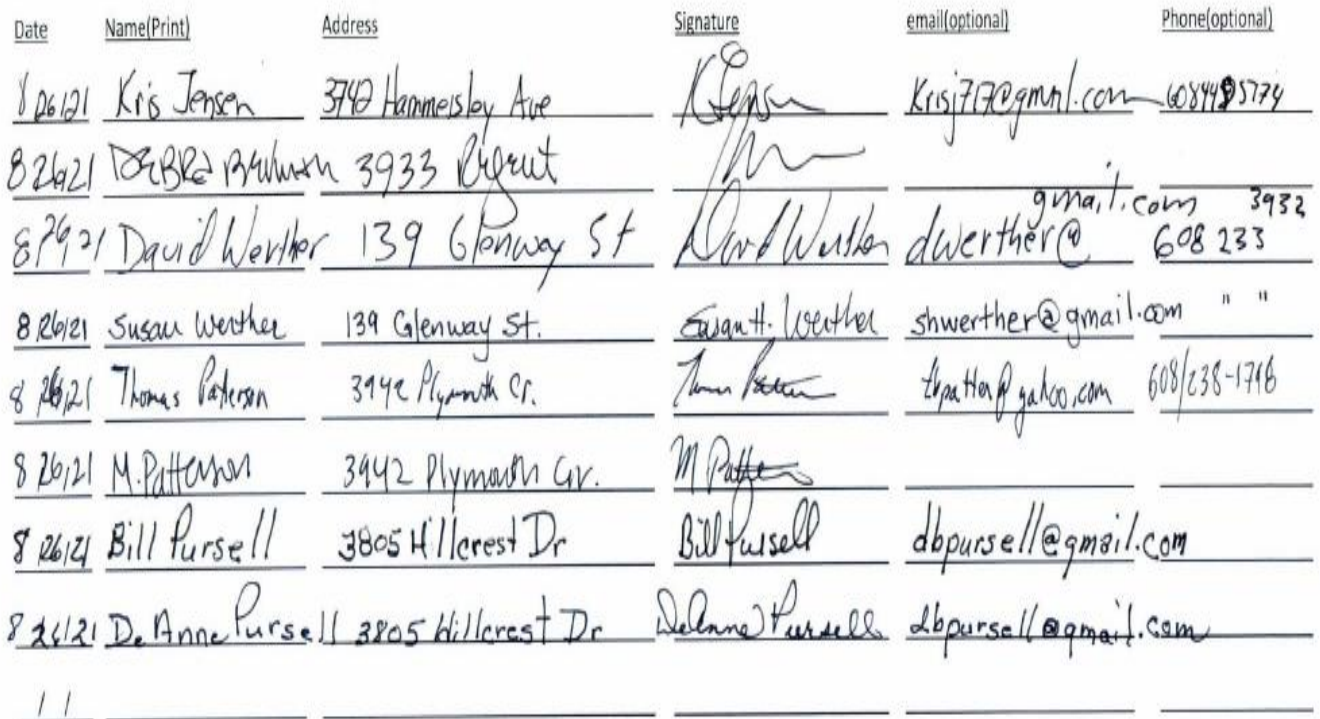 Date Name(Print) Address Signature email(optional) Phone(optional)
8 26 21 Kris Jensen 3742 Hammersley Ave K Jensen Krisj717@gmail.com
8 26 21 DEBRa 3933
gmail.com 3932
8 26 21 David Werther 139 Glenway St David Werther dwerther@ 608 233
8 26/21 Susan Werther 139 Glenway St. Susan H. Werther shwerther@gmail.com " "
8 26/21 Thomas Patterson 3942 Plymouth Cr. tbpatter@yahoo.com 608/238-1796
8 26/21 M. Patterson 3942 Plymouth Cir. M Patterson
8 26/21 Bill Pursell 3805 Hillcrest Dr Bill Pursell dbpursell@gmail.com
8 26/21 DeAnne Pursell 3805 Hillcrest Dr DeAnne Pursell dbpursell@gmail.com
/ /